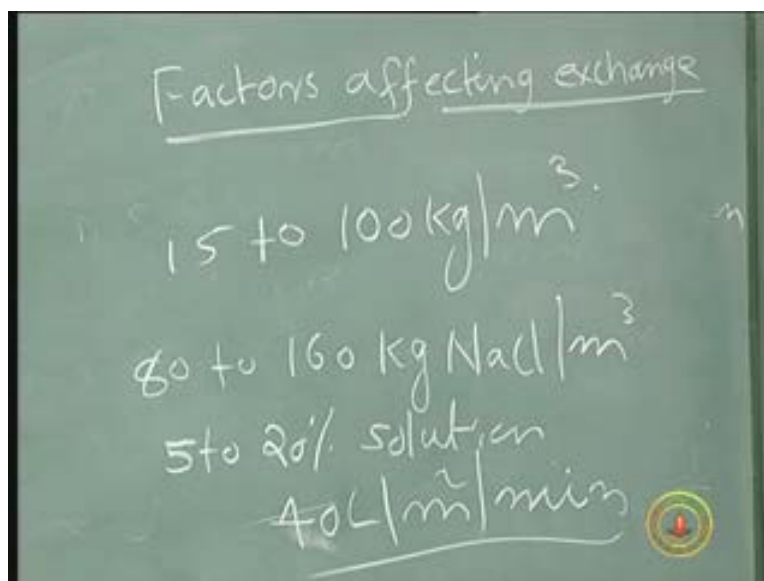 Factors affecting exchange
15 to 100 kg/m³.
80 to 160 kg NaCl/m³
5 to 20% solution
40L/m²/min